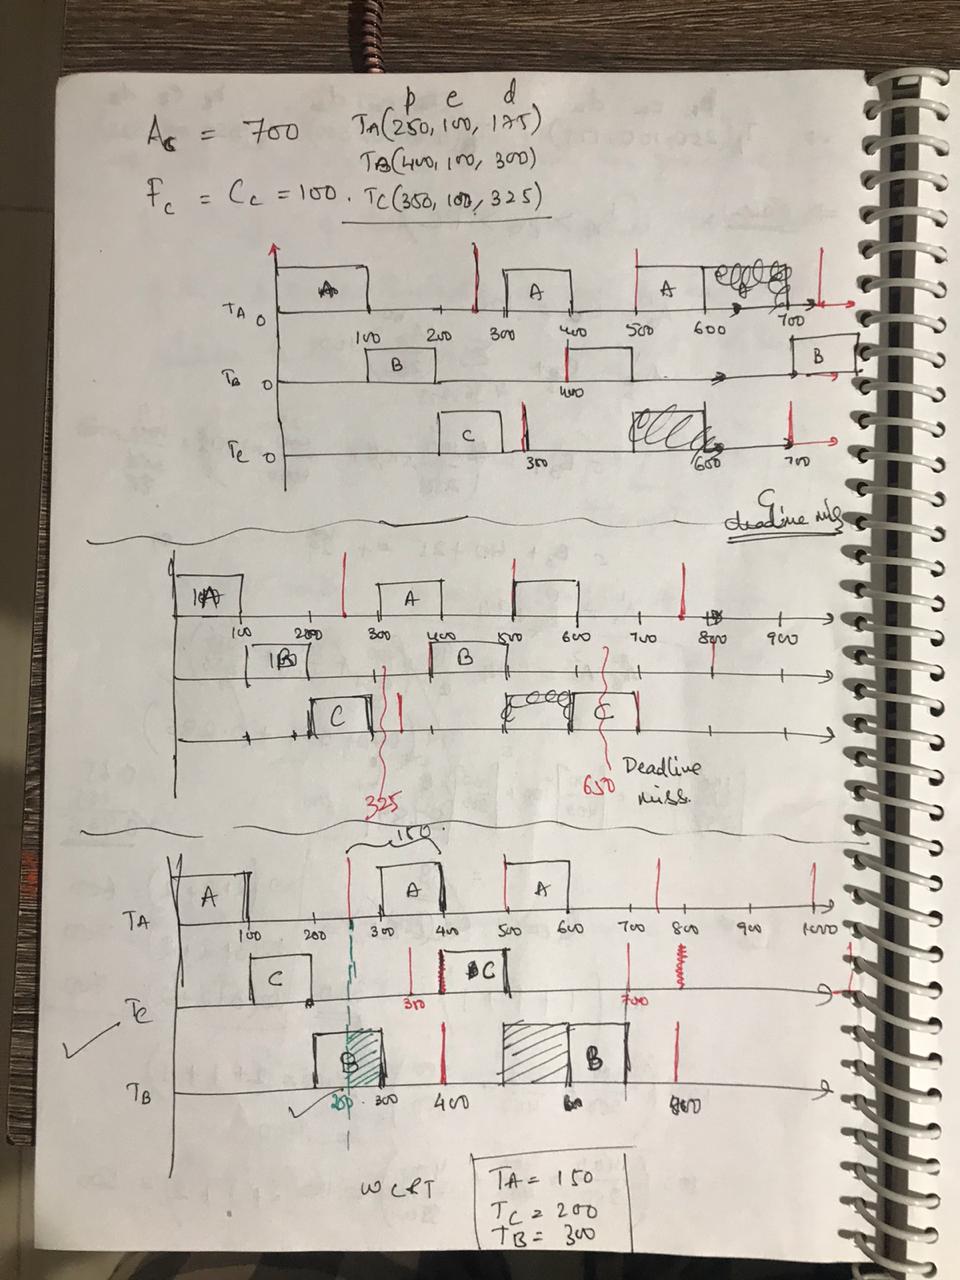 p e d
A₆ = 700 TA(250, 100, 175)
TB(400, 100, 300)
Fc = Cc = 100. TC(350, 100, 325)
A A A
TA 0 100 200 300 400 500 600 700
B B
TB 0 400
C
TC 0 300 600 700
C
deadline miss
A A
100 200 300 400 500 600 700 800 900
B B
C C
325 650 Deadline
miss.
150.
A A A
TA 100 200 300 400 500 600 700 800 900 1000
C C
TC 350 700
B B
TB 250. 300 400 800
WCRT TA = 150
TC = 200
TB = 300